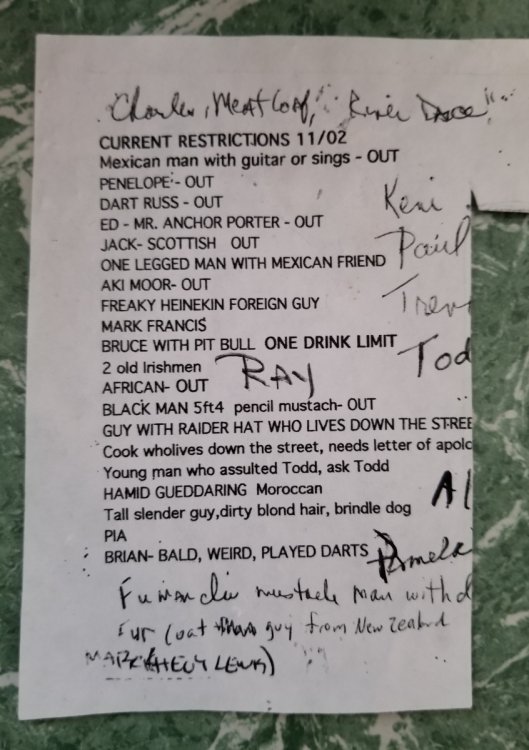 Charles, Meatloaf, "River Dance"
CURRENT RESTRICTIONS 11/02
Mexican man with guitar or sings - OUT
PENELOPE - OUT
DART RUSS - OUT
Keni
ED - MR. ANCHOR PORTER - OUT
JACK- SCOTTISH OUT
Paul
ONE LEGGED MAN WITH MEXICAN FRIEND
AKI MOOR- OUT
FREAKY HEINEKIN FOREIGN GUY
MARK FRANCIS
BRUCE WITH PIT BULL ONE DRINK LIMIT
Tod
2 old Irishmen
RAY
AFRICAN- OUT
BLACK MAN 5ft4 pencil mustach- OUT
GUY WITH RAIDER HAT WHO LIVES DOWN THE STREE
Cook wholives down the street, needs letter of apolo
Young man who assulted Todd, ask Todd
HAMID GUEDDARING Moroccan
Al
Tall slender guy,dirty blond hair, brindle dog
PIA
BRIAN- BALD, WEIRD, PLAYED DARTS
Pamela
mustache man with
Fur Coat guy from New Zealand
MARK (HEUY LEWIS)